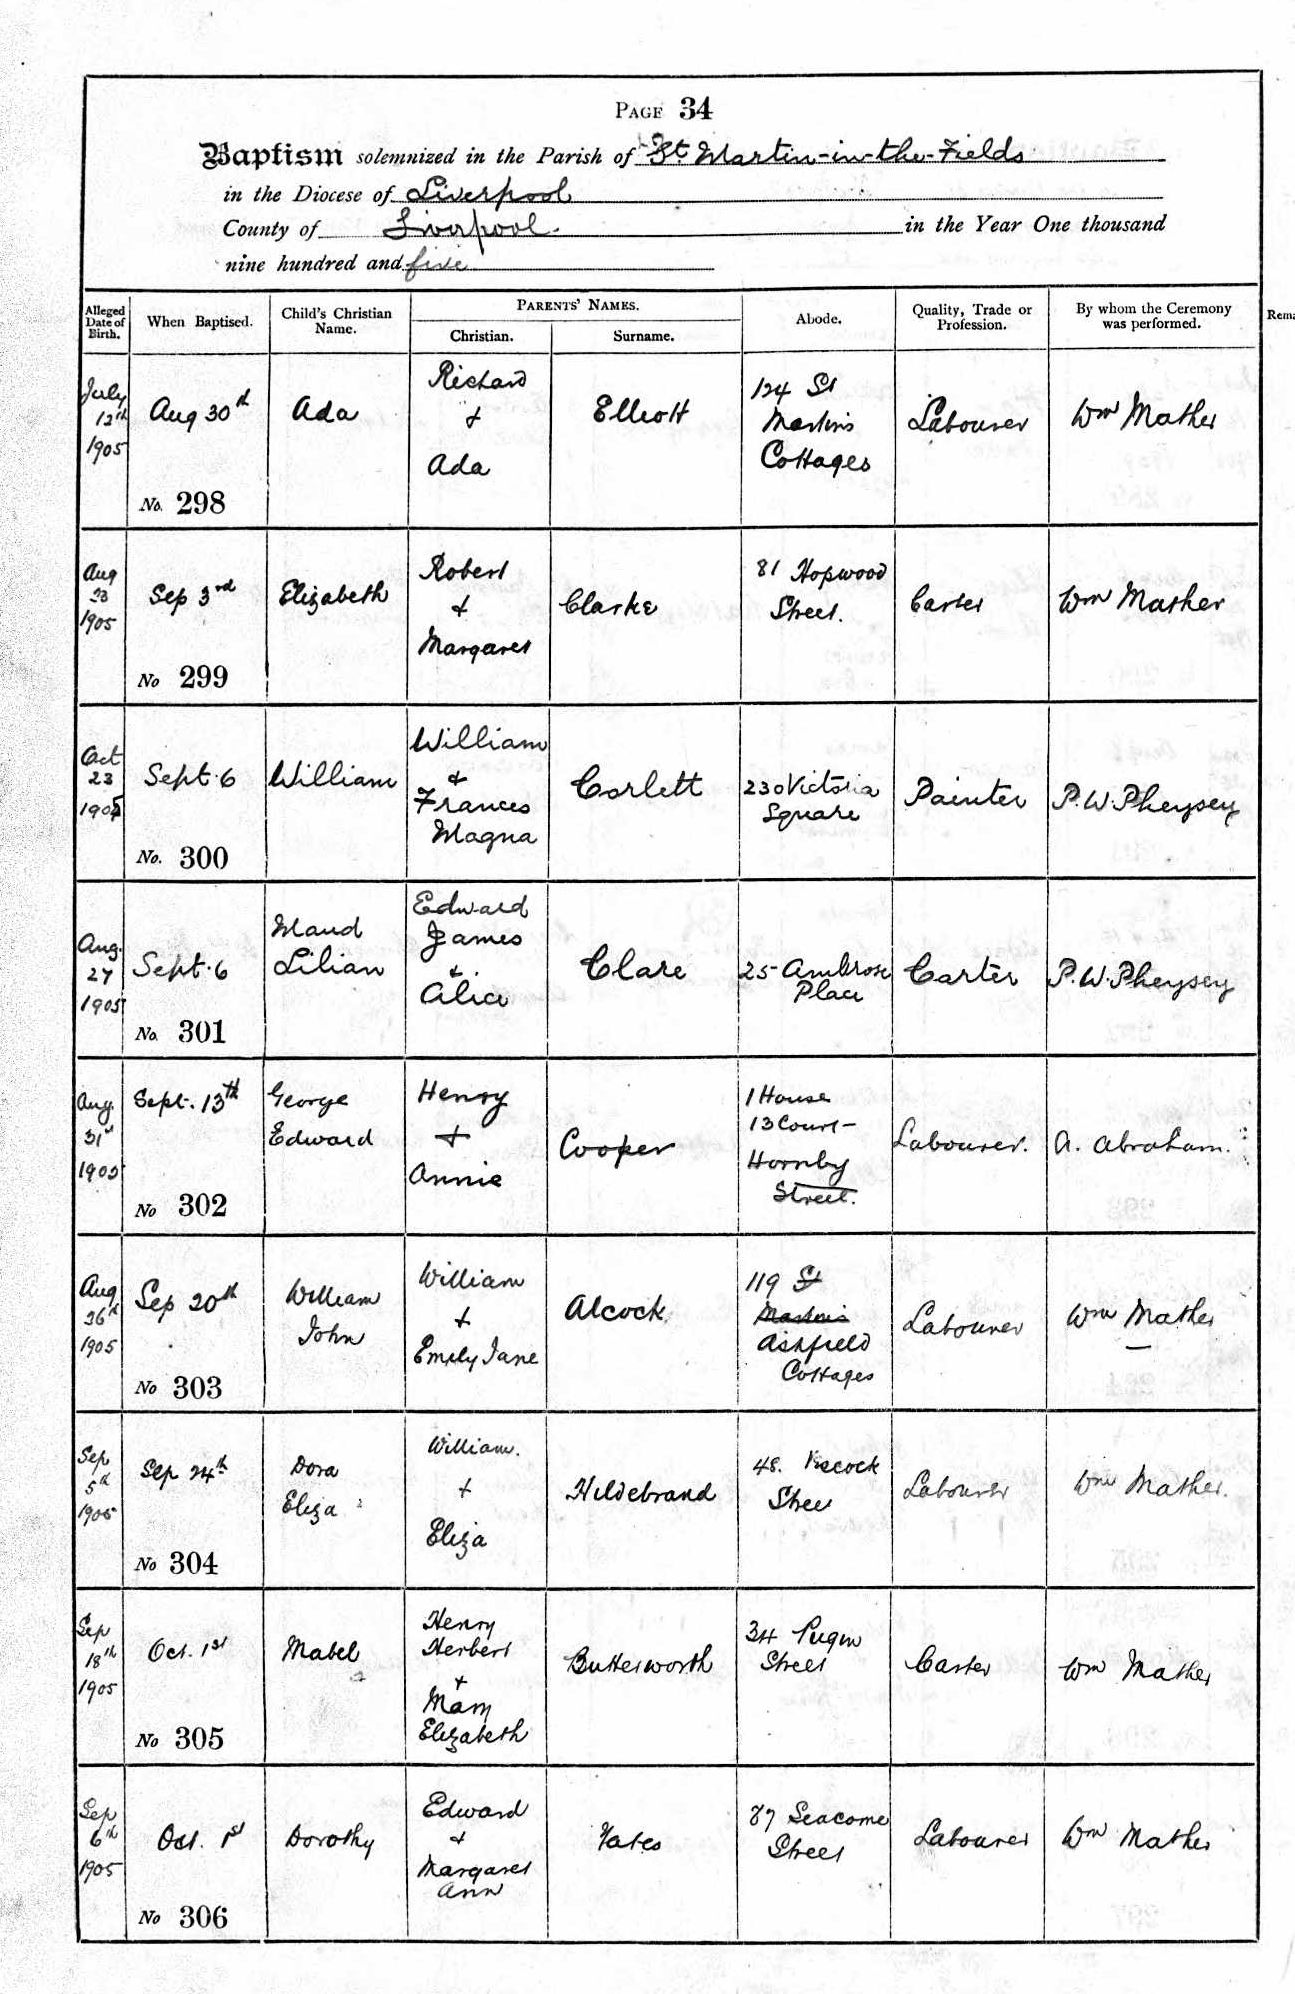 PAGE 34
Baptism solemnized in the Parish of St Martin-in-the-Fields
in the Diocese of Liverpool
County of Liverpool. in the Year One thousand
nine hundred and five
Alleged Date of Birth.
When Baptised.
Child's Christian Name.
PARENTS' NAMES.
Christian.
Surname.
Abode.
Quality, Trade or Profession.
By whom the Ceremony was performed.
July
12th
1905
Aug 30th
No. 298
Ada
Richard
+
Ada
Elliott
124 St
Martins
Cottages
Labourer
Wm Mather
Aug
23
1905
Sep 3rd
No 299
Elizabeth
Robert
+
Margaret
Clarke
81 Hopwood
Street.
Carter
Wm Mather
Oct
23
Sept. 6
No. 300
William
William
&
Frances
Magna
Corlett
230 Victoria
Square
Painter
P. W. Pheysey
Aug.
27
1905
Sept. 6
No. 301
Maud
Lilian
Edward
James
&
Alice
Clare
25 Ambrose
Place
Carter
P. W. Pheysey
Aug.
31st
1905
Sept. 13th
No 302
George
Edward
Henry
+
Annie
Cooper
1 House
13 Court
Hornby
Street.
Labourer.
A. Abraham.
Aug
26th
1905
Sep 20th
No 303
William
John
William
+
Emily Jane
Alcock
119 St
Martins
Ashfield
Cottages
Labourer
Wm Mather
Sep
5th
1905
Sep 24th
No 304
Dora
Eliza
William.
+
Eliza
Hildebrand
48. Peacock
Street
Labourer
Wm Mather.
Sep
18th
1905
Oct. 1st
No 305
Mabel
Henry
Herbert
+
Mary
Elizabeth
Butterworth
34 Pugin
Street
Carter
Wm Mather
Sep
6th
1905
Oct. 1st
No 306
Dorothy
Edward
&
Margaret
Ann
Yates
87 Seacome
Street
Labourer
Wm Mather